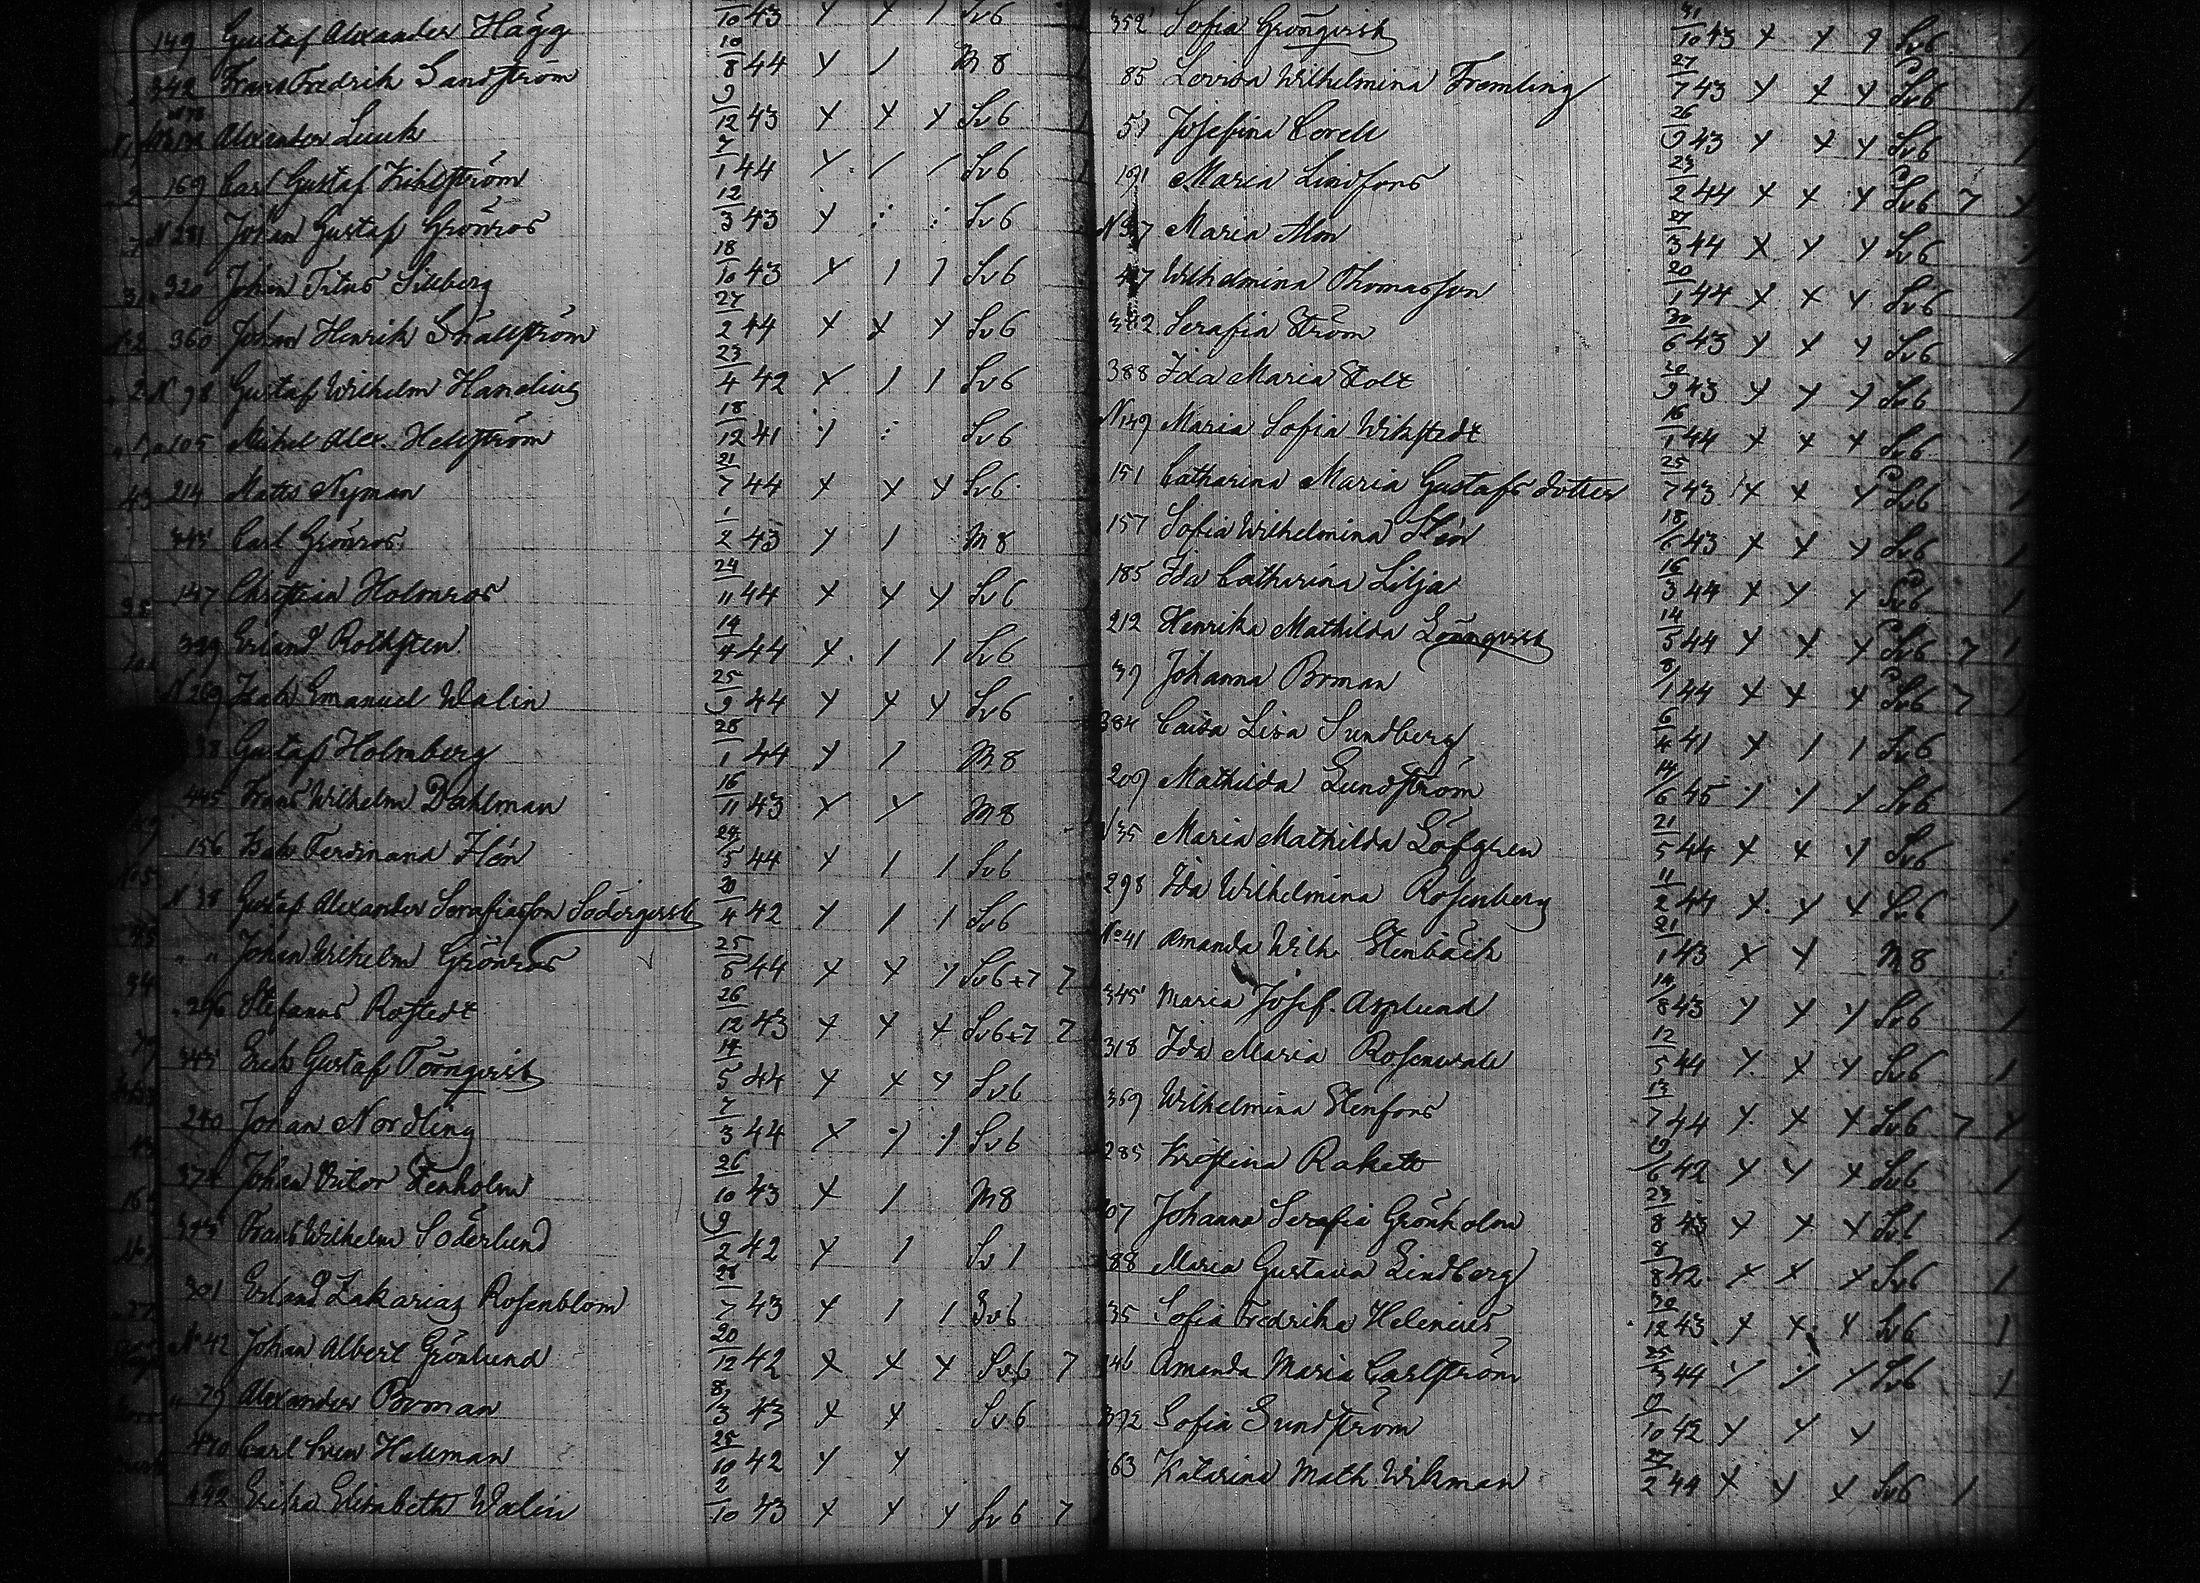 149 Gustaf Alexander Hägg 10 43 x x 1 Sv6
342 Frans Fredrik Sandström 10/8 44 x 1 M8
Alexander Luuk 9/12 43 x x x Sv6
169 Carl Gustaf Kihlström 7/1 44 x 1 1 Sv6
N 281 Johan Gustaf Grönros 12/3 43 x : : Sv6
320 Johan Titus Sillberg 18/10 43 x 1 1 Sv6
360 Johan Henrik Snällström 27/2 44 x x x Sv6
N 98 Gustaf Wilhelm Hanelius 23/4 42 x 1 1 Sv6
105 Mikel Alex. Hellström 18/12 41 Sv6
214 Matts Nyman 21/7 44 x x x Sv6
343 Carl Grönros 1/2 43 x 1 M8
147 Christian Holmros 24/11 44 x x x Sv6
399 Erland Rothsten 14/4 44 x 1 1 Sv6
N 269 Isak Emanuel Walin 25/9 44 x x x Sv6
238 Gustaf Holmberg 28/1 44 x 1 M8
445 Frans Wilhelm Dahlman 16/11 43 x x M8
156 Isak Ferdinand Flén 24/5 44 x 1 1 Sv6
N 38 Gustaf Alexander Serafiasson Södergvist 20/4 42 x 1 1 Sv6
" " Johan Wilhelm Grönros 25/6 44 x x x Sv6+7 7
296 Stefanus Rostedt 26/12 43 x x x Sv6+7 7
343 Erik Gustaf Törnqvist 14/5 44 x x x Sv6
240 Johan Nordling 7/3 44 x 1 1 Sv6
374 Johan Viktor Stenholm 26/10 43 x 1 M8
343 Frans Wilhelm Söderlund 9/2 42 x 1 Sv1
301 Erland Zakarias Rosenblom 28/7 43 x 1 1 Sv6
No 42 Johan Albert Grönlund 20/12 42 x x x Sv6 7
" 79 Alexander Boman 8/3 43 x x Sv6
470 Carl Sven Hellman 25/10 42 x x
442 Erika Elisabeth Walin 2/10 43 x x x Sv6 7
352 Sofia Grönqvist 31/10 43 x x x Sv6 1
85 Lovisa Wilhelmina Fremling 27/7 43 x x x Sv6 1
59 Josefina Corell 26/9 43 x x x Sv6 1
191 Maria Lindfors 23/2 44 x x x Sv6 7 x
Maria Alm 21/3 44 x x x Sv6
Wilhelmina Thomasson 20/1 44 x x x Sv6 1
342 Serafia Ström 30/6 43 x x x Sv6 1
388 Ida Maria Stolt 20/9 43 x x x Sv6 1
N 149 Maria Sofia Wikstedt 16/1 44 x x x Sv6 1
151 Catharina Maria Gustafs dotter 25/7 43 x x x Sv6 1
157 Sofia Wilhelmina Flén 18/6 43 x x x Sv6 1
185 Ida Catharina Lilja 16/3 44 x x x Sv6 1
212 Henrika Mathilda Lönnqvist 14/5 44 x x x Sv6 7 1
39 Johanna Boman 8/1 44 x x x Sv6 7 1
384 Caisa Lisa Sundberg 6/4 41 x 1 1 Sv6 1
209 Mathilda Lundström 14/6 45 x x x Sv6 1
N 35 Maria Mathilda Löfgren 21/5 44 x x x Sv6
298 Ida Wilhelmina Rosenberg 11/2 44 x x x Sv6 1
No 41 Amanda Wilh. Stenbäck 21/1 43 x x M8
345 Maria Josef. Asplund 14/8 43 x x x Sv6 1
318 Ida Maria Rosenwall 12/5 44 x x x Sv6 1
369 Wilhelmina Stenfors 13/7 44 x x x Sv6 7 x
285 Kristina Rakett 19/6 42 x x x Sv6 1
07 Johanna Serafia Grönholm 23/8 43 x x x Sv1 1
88 Maria Gustava Lindberg 8/8 42 x x x Sv6 1
35 Sofia Fredrika Helenius 30/12 43 x x x Sv6 1
146 Amanda Maria Carlström 25/3 44 x x x Sv6 1
372 Sofia Sundström 10 42 x x x
63 Katarina Math. Wikman 27/2 44 x x x Sv6 1